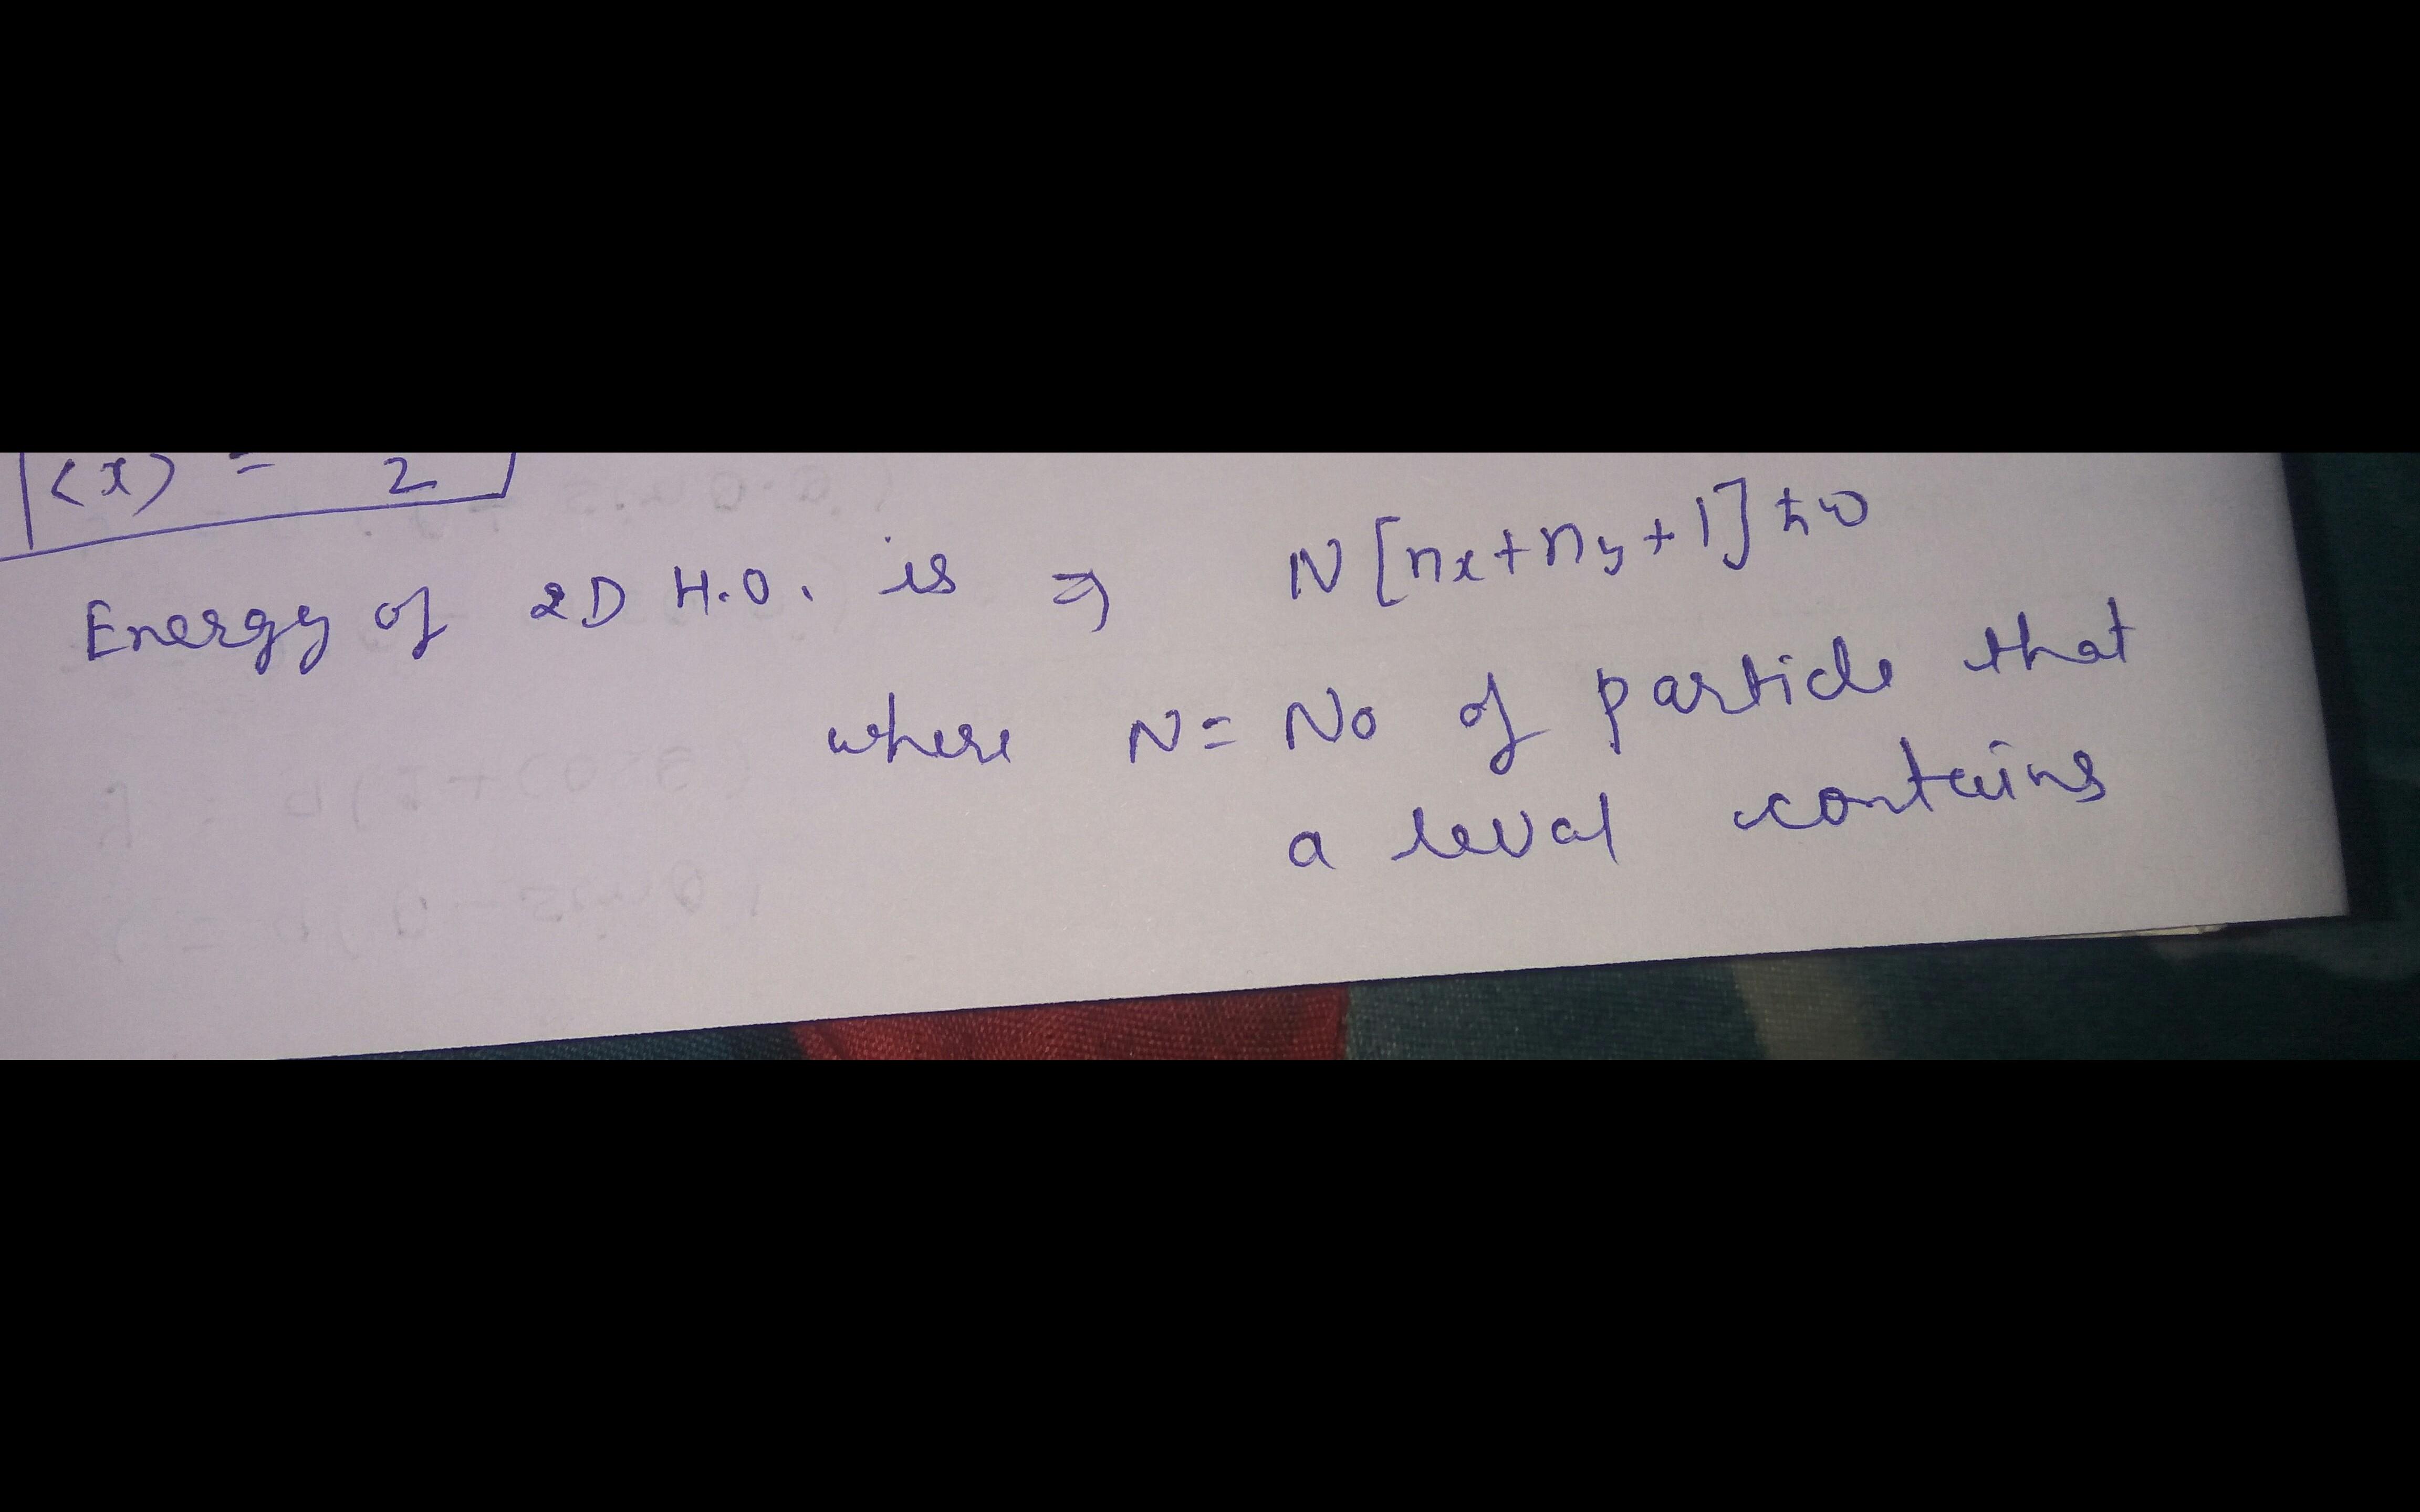 <x> = 2
Energy of 2D H.O. is ⇒ N[nx+ny+1]ħω
where N= No of particle that
a leval contains